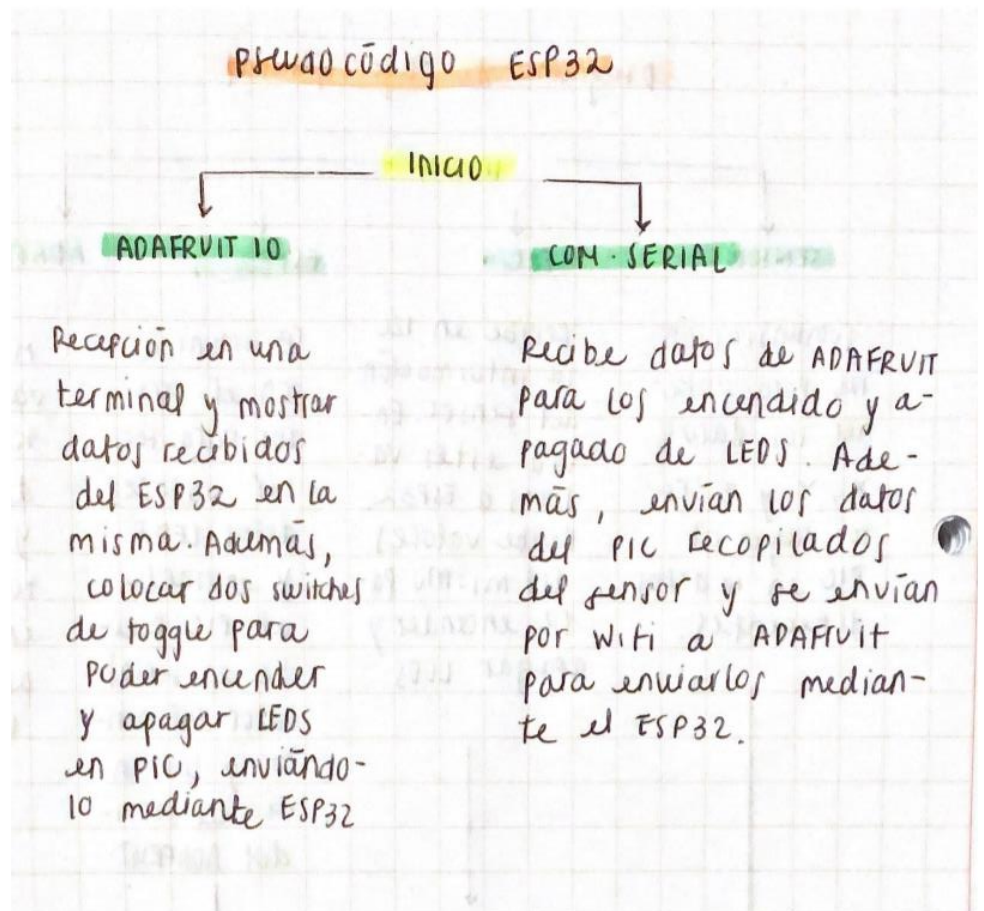 Pseudo código ESP32
INICIO
ADAFRUIT IO
Recepción en una
terminal y mostrar
datos recibidos
del ESP32 en la
misma. Además,
colocar dos switches
de toggle para
poder encender
y apagar LEDS
en PIC, enviándo-
lo mediante ESP32
COM. SERIAL
Recibe datos de ADAFRUIT
para los encendido y a-
pagado de LEDS. Ade-
más, envían los datos
del PIC recopilados
del sensor y se envían
por Wifi a ADAFruit
para enviarlos median-
te el ESP32.